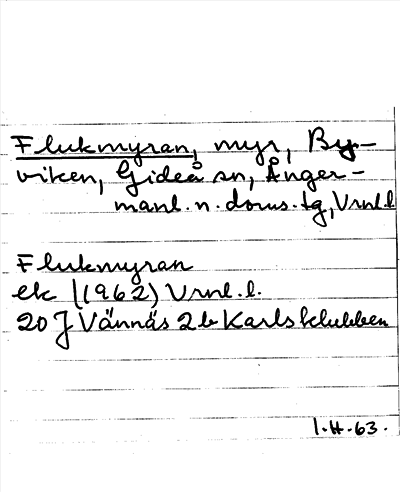 Flukmyran, myr, By-
viken, Gideå sn, Ånger-
manl. n. doms. tg, Vrnl.l
Flukmyran
ek (1962) Vrnl.l.
20 J Vännäs 2b Karlsklubben
1.H.63.